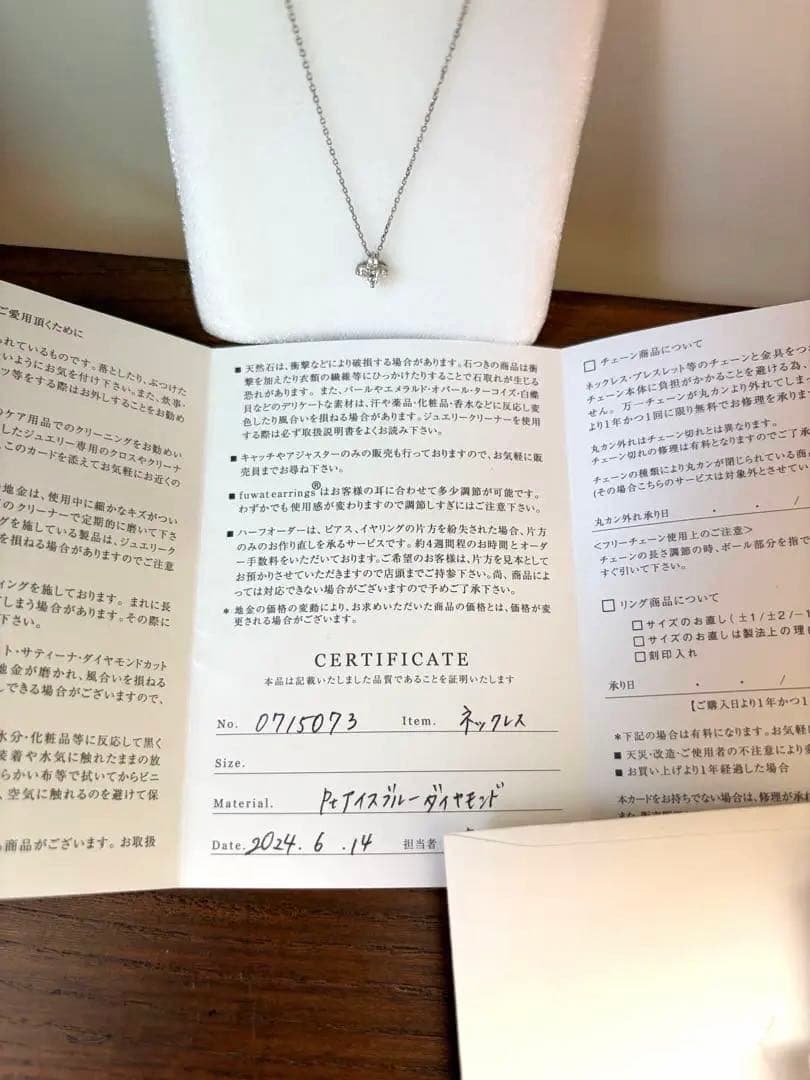 ご愛用頂くために
られているものです。落としたり、ぶつけた
いようにお気を付け下さい。また、炊事・
ツ等をする際はお外しすることをお勧め
ケア用品でのクリーニングをお勧めい
したジュエリー専用のクロスやクリーナ
、このカードを添えてお気軽にお近くの
地金は、使用中に細かなキズがつい
のクリーナーで定期的に磨いて下さ
グを施している製品は、ジュエリーク
を損ねる場合がありますのでご注意
ィングを施しております。まれに長
てしまう場合があります。その際に
下さい。
ト・サティーナ・ダイヤモンドカット
地金が磨かれ、風合いを損ねる
しできる場合がございますので、
水分・化粧品等に反応して黒く
装着や水気に触れたままの放
らかい布等で拭いてからビニ
、空気に触れるのを避けて保
商品がございます。お取扱
■ 天然石は、衝撃などにより破損する場合があります。石つきの商品は衝
撃を加えたり衣類の繊維等にひっかけたりすることで石取れが生じる
恐れがあります。また、パールやエメラルド・オパール・ターコイズ・白蝶
貝などのデリケートな素材は、汗や薬品・化粧品・香水などに反応し変
色したり風合いを損ねる場合があります。ジュエリークリーナーを使用
する際は必ず取扱説明書をよくお読み下さい。
■ キャッチやアジャスターのみの販売も行っておりますので、お気軽に販
売員までお尋ね下さい。
■ fuwat earrings®はお客様の耳に合わせて多少調節が可能です。
わずかでも使用感が変わりますので調節しすぎにはご注意下さい。
■ ハーフオーダーは、ピアス、イヤリングの片方を紛失された場合、片方
のみのお作り直しを承るサービスです。約4週間程のお時間とオーダ
ー手数料をいただいております。ご希望のお客様は、片方を見本として
お預かりさせていただきますので店頭までご持参下さい。尚、商品によ
っては対応できない場合がございますので予めご了承下さい。
* 地金の価格の変動により、お求めいただいた商品の価格とは、価格が変
更される場合がございます。
CERTIFICATE
本品は記載いたしました品質であることを証明いたします
No. 0715073 Item. ネックレス
Size.
Material. Ptアイスブルーダイヤモンド
Date. 2024.6.14 担当者
□ チェーン商品について
ネックレス・ブレスレット等のチェーンと金具をつ
チェーン本体に負担がかかることを避ける為、
せん。万一チェーンが丸カンより外れてしま
より1年かつ1回に限り無料でお修理を承りま
丸カン外れはチェーン切れとは異なります。
チェーン切れの修理は有料となりますのでご了承
チェーンの種類により丸カンが閉じられている商品
(その場合こちらのサービスは対象外とさせてい
丸カン外れ承り日 ・ ・ /
<フリーチェーン使用上のご注意>
チェーンの長さ調節の時、ボール部分を指で
すぐ引いて下さい。
□ リング商品について
□ サイズのお直し(±1/±2/-1
□ サイズのお直しは製法上の理
□ 刻印入れ
承り日 ・ ・ /
【ご購入日より1年かつ1
*下記の場合は有料になります。お気軽に
■ 天災・改造・ご使用者の不注意により
■ お買い上げより1年経過した場合
本カードをお持ちでない場合は、修理が承れ